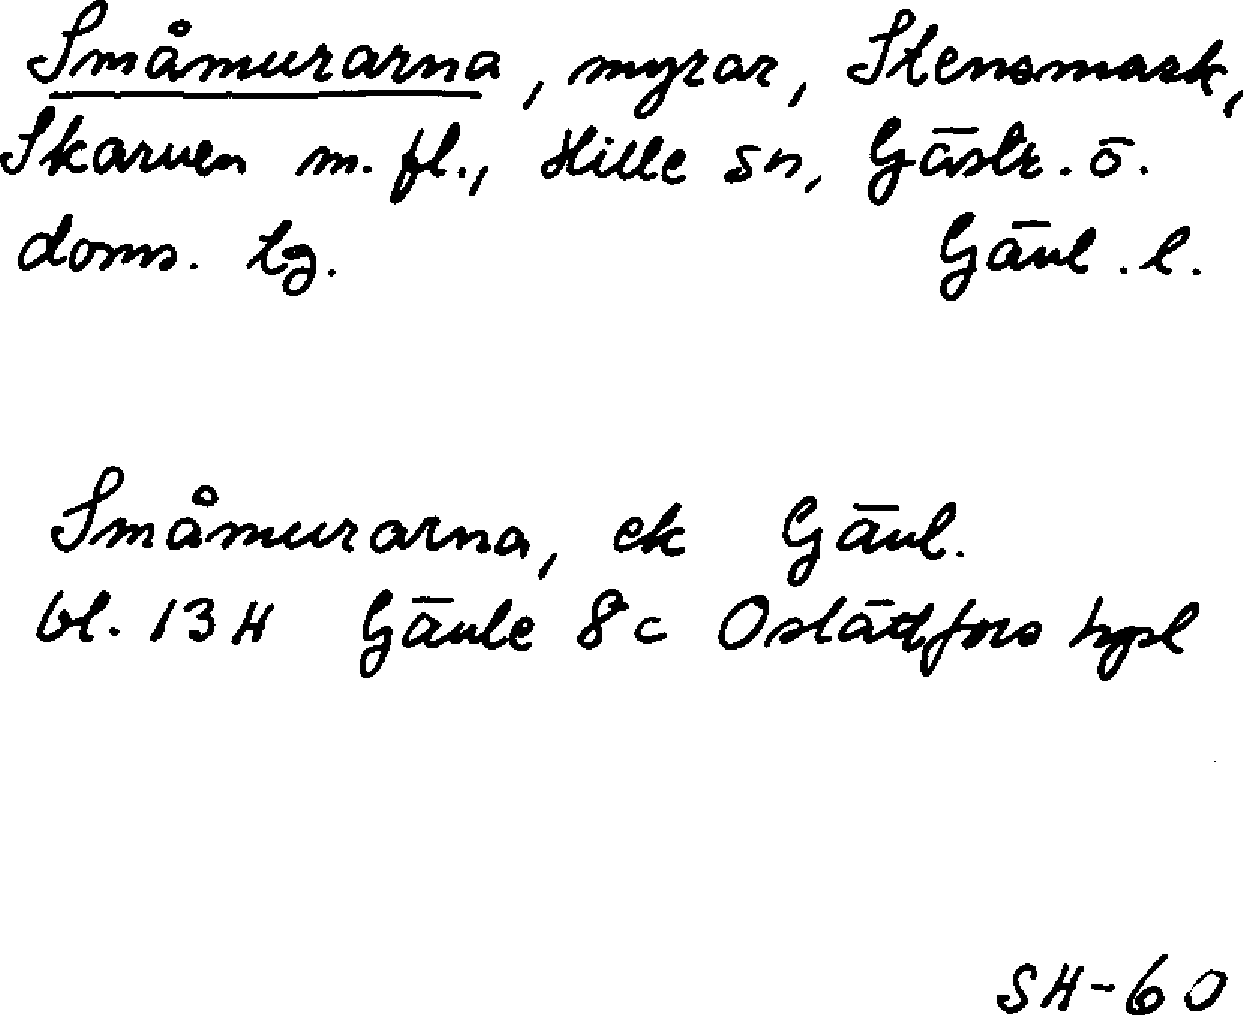 Småmurarna, myrar, Stensmask,
Skarven m. fl., Hille sn, Gästr. ö.
doms. lg. Gävl. l.
Småmurarna, ek Gävl.
bl. 13H Gävle 8c Oslättfors hpl
SH-60